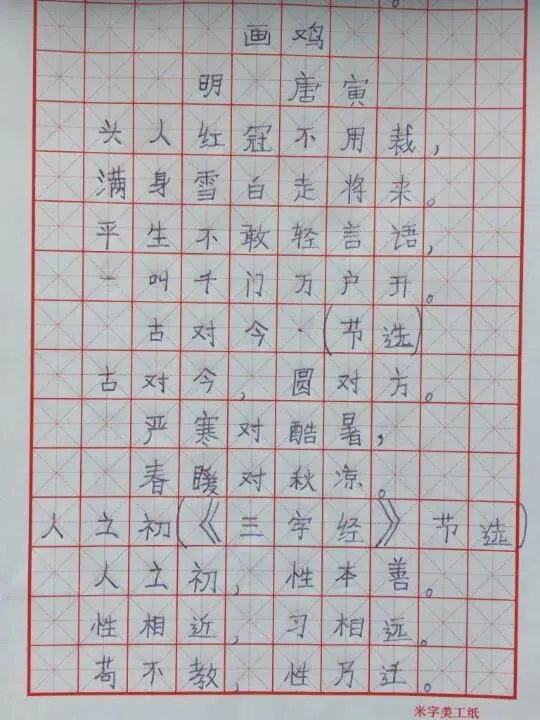 画鸡
明 唐寅
头人红冠不用裁,
满身雪白走将来。
平生不敢轻言语,
一叫千门万户开。
古对今·(节选)
古对今,圆对方。
严寒对酷暑,
春暖对秋凉。
人之初(《三字经》节选)
人之初,性本善。
性相近,习相远。
苟不教,性乃迁。
米字美工纸